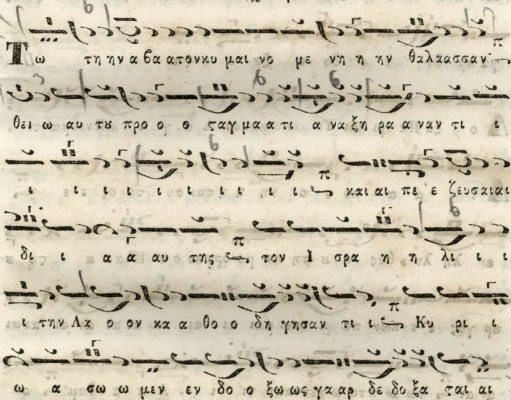 Τω τη ην α βα α τον κυ μαι νο με νη η ην θαλαασσαν
θει ω αυ τȣ προ ο ο ταγ μα α τι α να ξη ρα α ναν τι ι
ι ι ι ι ι ι ι ι ι ι και αι πε ε ζευσαιαι
δι ι α α αυ της τον Ι σρα η η λι ι ι
ι την Λα ο ον κα α θο ο δη γησαν τι ι Κυ ρι ι
ω α σω ω μεν εν δο ο ξω ως γα αρ δε δο ξα ται αι